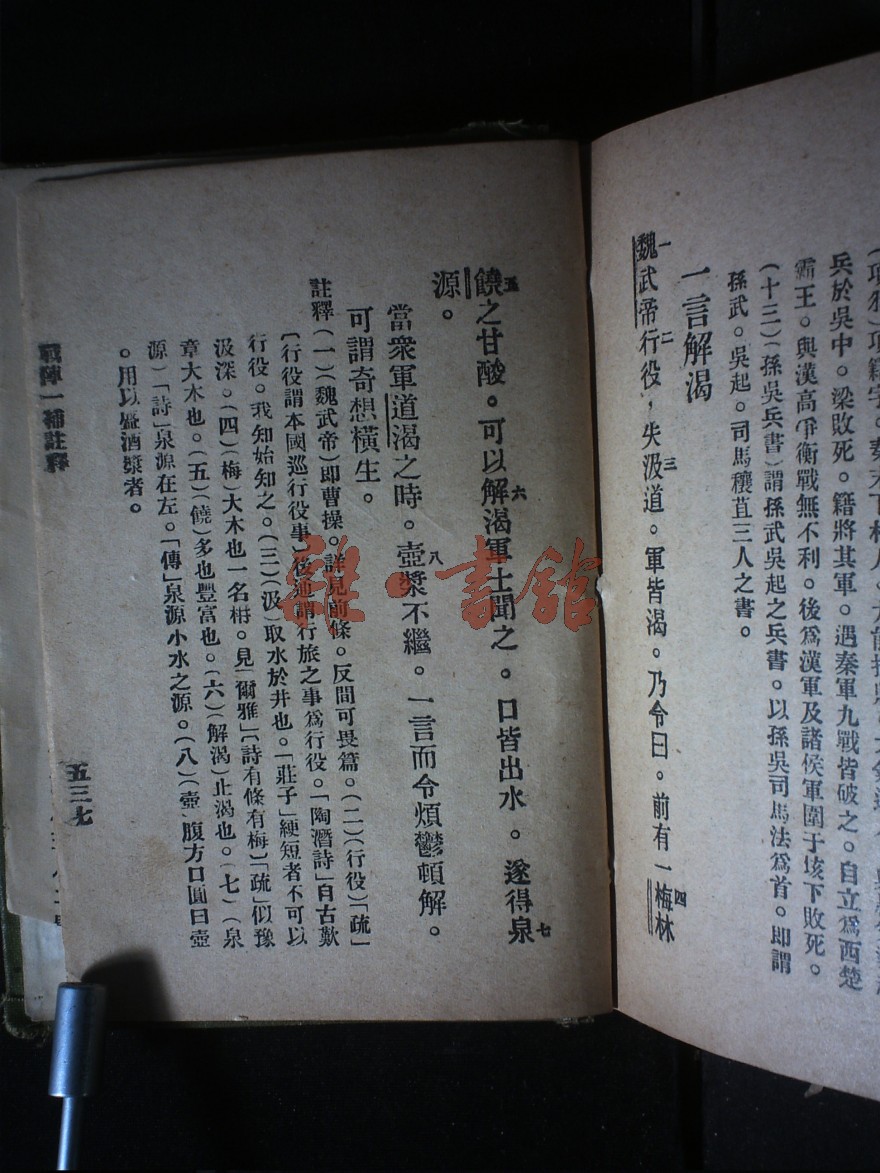 兵於吳中。梁敗死。籍將其軍。遇秦軍九戰皆破之。自立爲西楚
霸王。與漢高爭衡戰無不利。後爲漢軍及諸侯軍圍于垓下敗死。
(十三)(孫吳兵書)謂孫武吳起之兵書。以孫吳司馬法爲首。卽謂
孫武。吳起。司馬穰苴三人之書。
一言解渴
魏武帝行役，失汲道。軍皆渴。乃令曰。前有一梅林
一 二 三 四
饒之甘酸。可以解渴軍士聞之。口皆出水。遂得泉
五 六 七
源。
當衆軍道渴之時。壺漿不繼。一言而令煩鬱頓解。
八
可謂奇想橫生。
註釋(一)(魏武帝)卽曹操。詳見前條。反間可畏篇。(二)(行役)「疏」
〔行役謂本國巡行役事〕後通謂行旅之事爲行役。「陶潛詩」自古歎
行役。我知始知之。(三)(汲)取水於井也。「莊子」綆短者不可以
汲深。(四)(梅)大木也一名枏。見「爾雅」〔詩有條有梅〕「疏」似豫
章大木也。(五)(饒)多也豐富也。(六)(解渴)止渴也。(七)(泉
源)「詩」泉源在左。「傳」泉源小水之源。(八)(壺)腹方口圓曰壺
。用以盛酒漿者。
戰陣一補註釋
五三七
雜·書館